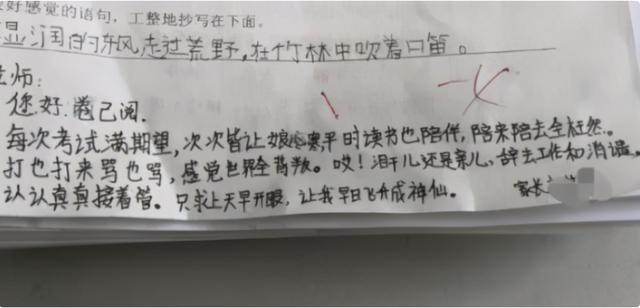 好感觉的语句,工整地抄写在下面。
湿润的东风走过荒野,在竹林中吹着口笛。
老师:
您好.卷已阅.
每次考试满期望,次次皆让娘心寒.平时读书也陪伴,陪来陪去全枉然。
打也打来骂也骂,感觉世界全背叛。哎!泪干儿还是亲儿、辞去工作和消遣。
认认真真接着管。只求上天早开眼,让我早日飞升成神仙。
家长